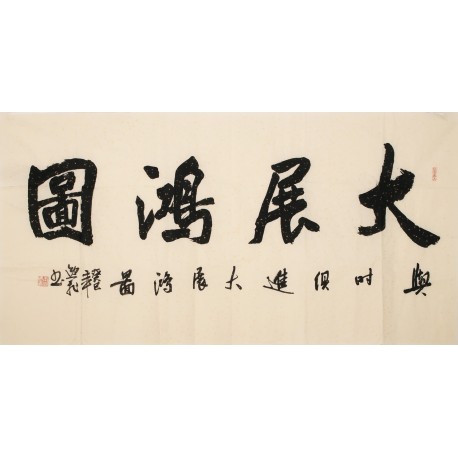 大展鴻圖
與时俱進大展鸿圖